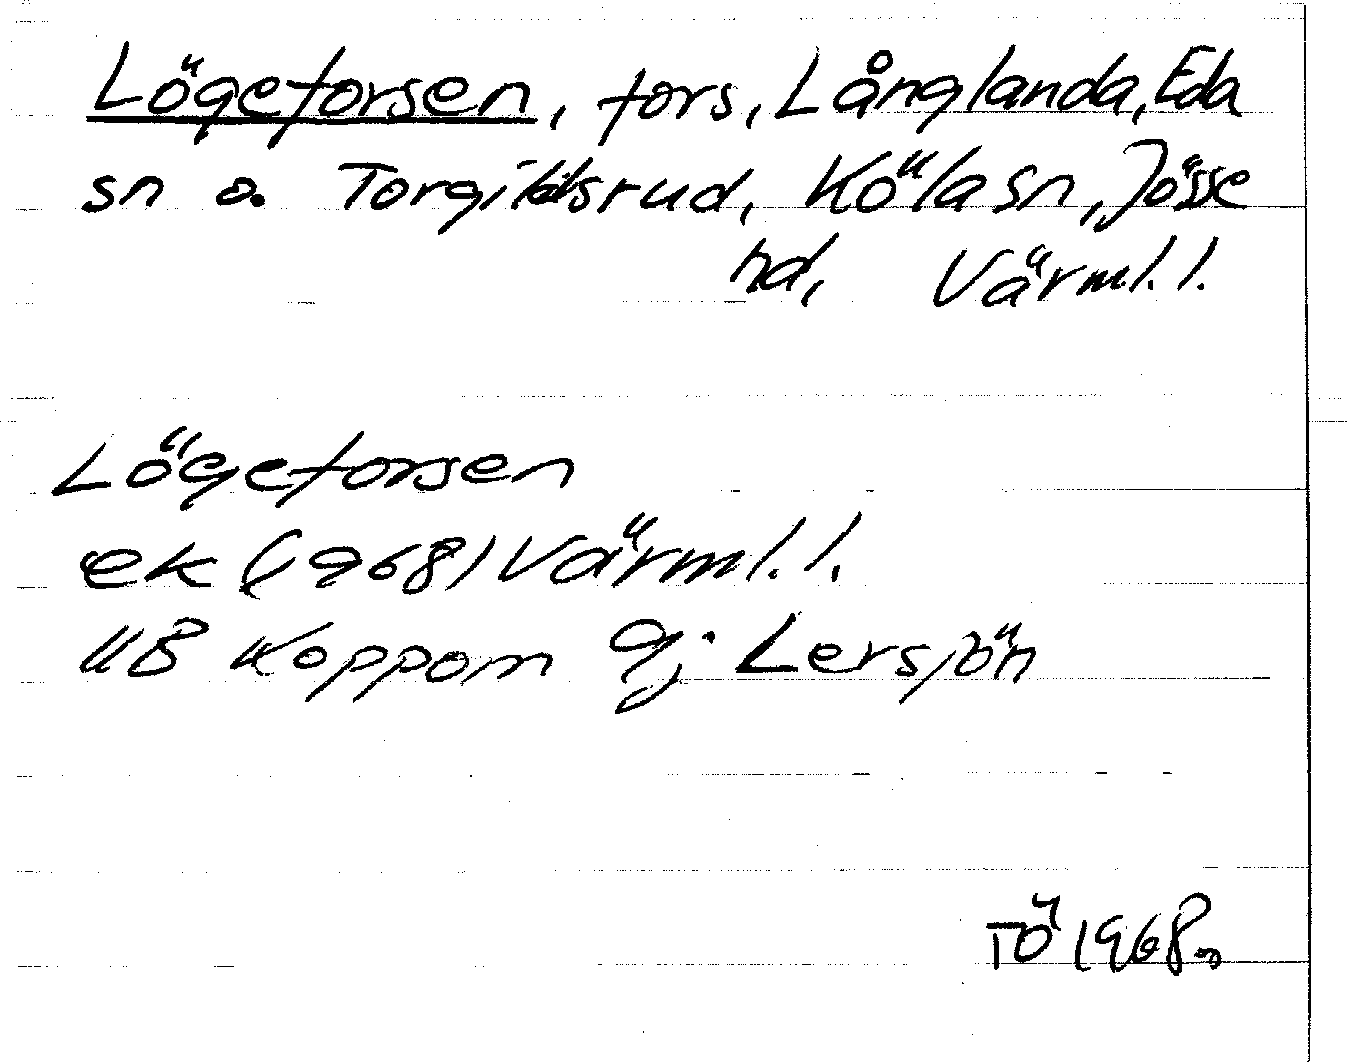 Lögeforsen, fors, Långlanda, Eda
sn o. Torgilsrud, Köla sn, Jösse
hd, Värml. l.
Lögeforsen
ek (1968) Värml. l.
11B Koppom 9j Lersjön
TÖ 1968.